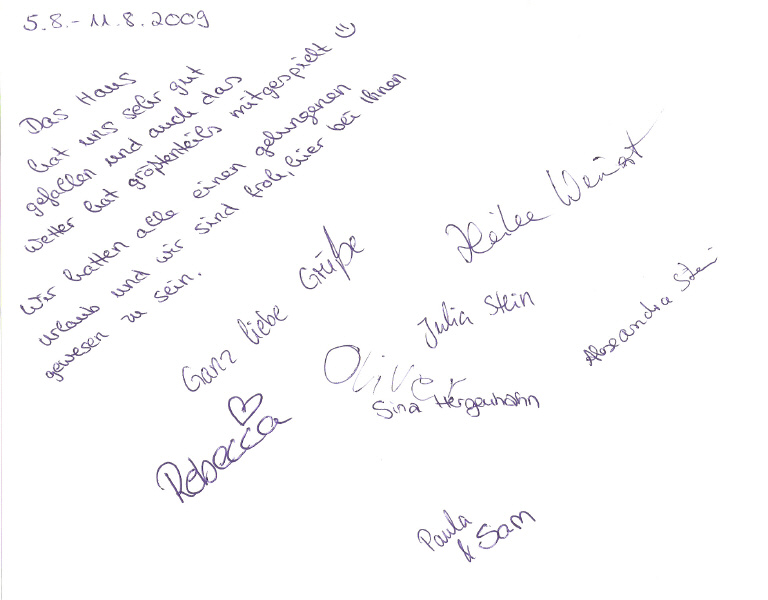 5.8.-11.8.2009
Das Haus
hat uns sehr gut
gefallen und auch das
Wetter hat größtenteils mitgespielt ☺
Wir hatten alle einen gelungenen
urlaub und wir sind froh, hier bei Ihnen
gewesen zu sein.
Ganz liebe Grüße
Heike
Julia Stein
Alexandra Stein
Oliver
Sina Hergenhahn
Rebecca
Paula
& Sam